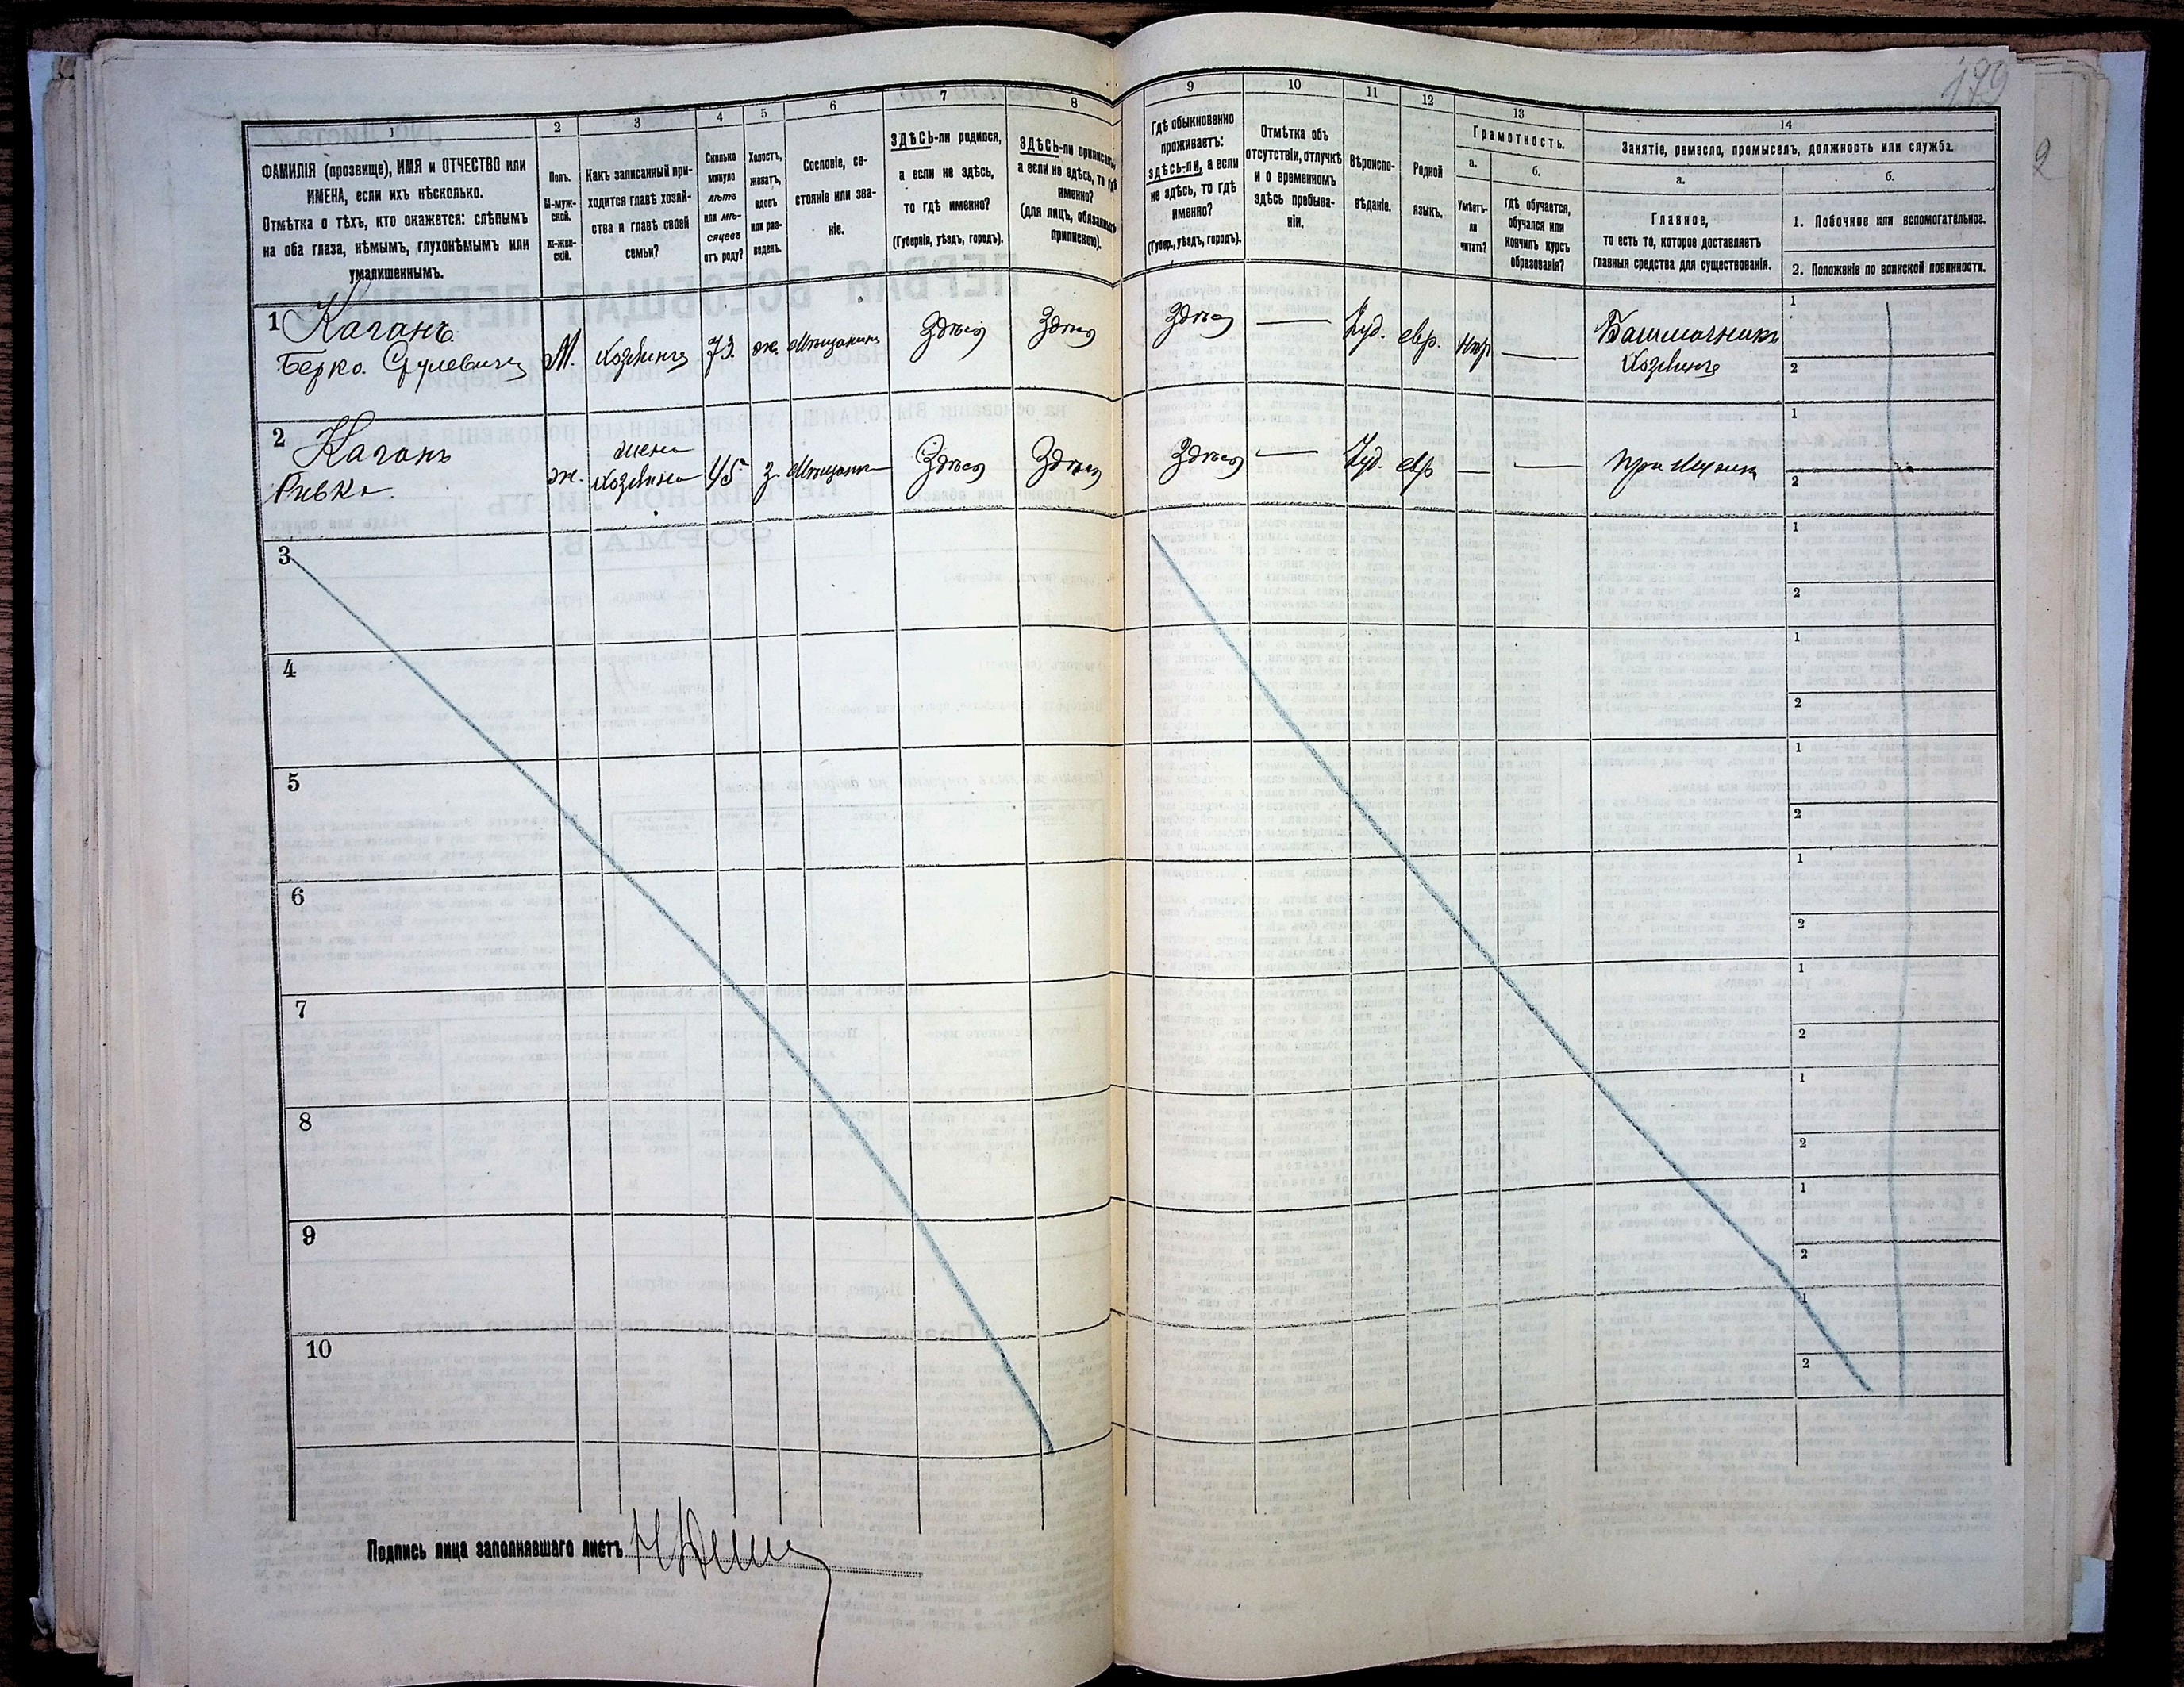 179
2
1
2
3
4
5
6
7
8
9
10
11
12
13
14
ФАМИЛІЯ (прозвище), ИМЯ и ОТЧЕСТВО или
ИМЕНА, если ихъ нѣсколько.
Отмѣтка о тѣхъ, кто окажется: слѣпымъ
на оба глаза, нѣмымъ, глухонѣмымъ или
умалишеннымъ.
Полъ.
М-муж-
ской.
ж-жен-
скій.
Какъ записанный при-
ходится главѣ хозяй-
ства и главѣ своей
семьи?
Сколько
минуло
лѣтъ
или мѣ-
сяцевъ
отъ роду?
Холостъ,
женатъ,
вдовъ
или раз-
веденъ.
Сословіе, со-
стояніе или зва-
ніе.
ЗДѢСЬ-ли родился,
а если не здѣсь,
то гдѣ именно?
(Губернія, уѣздъ, городъ).
ЗДѢСЬ-ли приписанъ,
а если не здѣсь, то гдѣ
именно?
(для лицъ, обязанныхъ
припискою).
Гдѣ обыкновенно
проживаетъ:
здѣсь-ли, а если
не здѣсь, то гдѣ
именно?
(Губер., уѣздъ, городъ).
Отмѣтка объ
отсутствіи, отлучкѣ
и о временномъ
здѣсь пребыва-
ніи.
Вѣроиспо-
вѣданіе.
Родной
языкъ.
Грамотность.
а.
Умѣетъ-
ли
читать?
б.
Гдѣ обучается,
обучался или
кончилъ курсъ
образованія?
Занятіе, ремесло, промыселъ, должность или служба.
а.
Главное,
то есть то, которое доставляетъ
главныя средства для существованія.
б.
1. Побочное или вспомогательное.
2. Положеніе по воинской повинности.
1 Каганъ
Берко Срулевичъ
М.
хозяинъ
73.
ж.
мѣщанинъ
Здѣсь
Здѣсь
Здѣсь
—
Іуд.
евр.
—
Башмачникъ
Хозяинъ
1
2
2 Каганъ
Ривка.
ж.
жена
хозяина
45
з
мѣщанка
Здѣсь
Здѣсь
Здѣсь
—
Іуд.
евр
—
—
при
1
2
3
1
2
4
1
2
5
1
2
6
1
2
7
1
2
8
1
2
9
1
2
10
1
2
Подпись лица заполнявшаго листъ